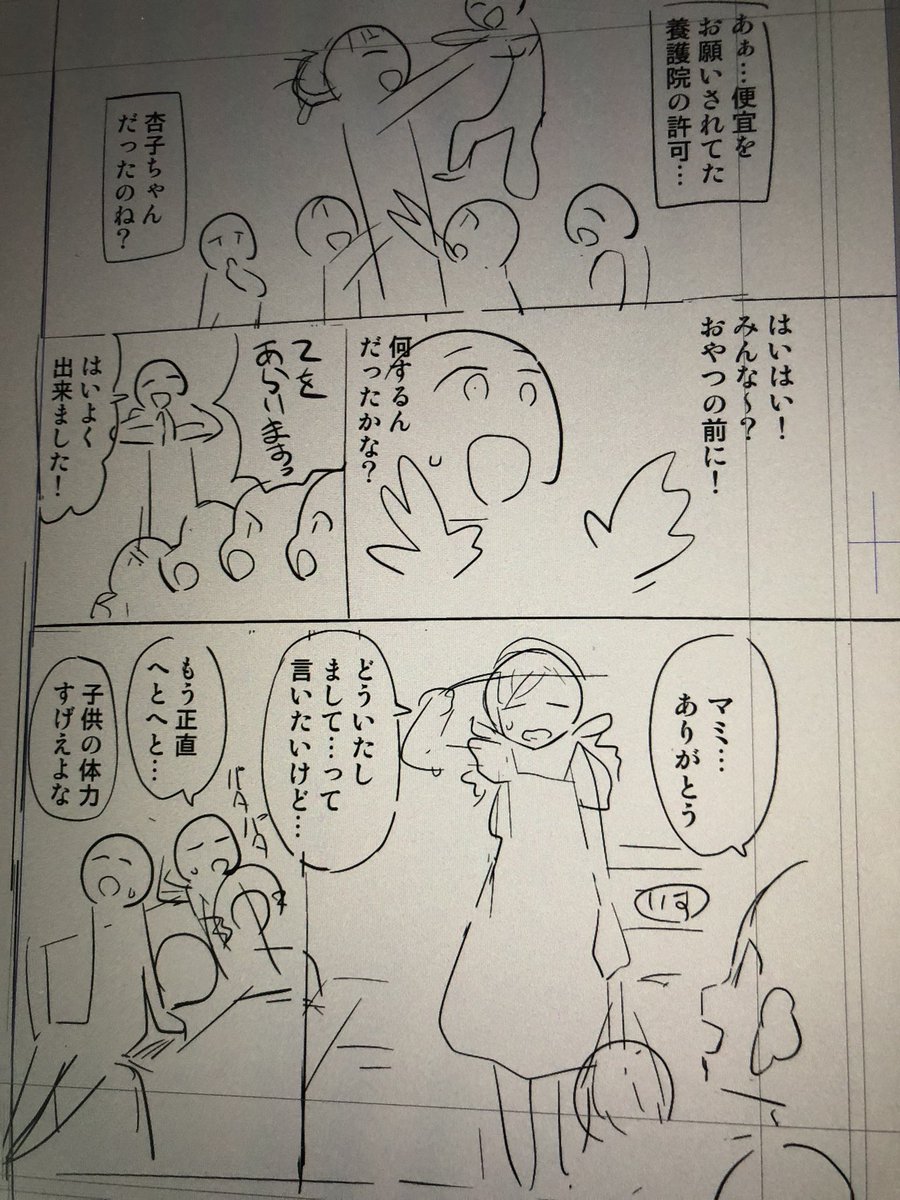 あぁ…便宜を
お願いされてた
養護院の許可…
杏子ちゃん
だったのね?
はいはい!
みんな〜?
おやつの前に!
何するん
だったかな?
てを
あらいまぁす
はいよく
出来ました!
マミ…
ありがとう
どういたし
まして…って
言いたいけど…
いす
もう正直
へとへと…
パタパタ
子供の体力
すげえよな